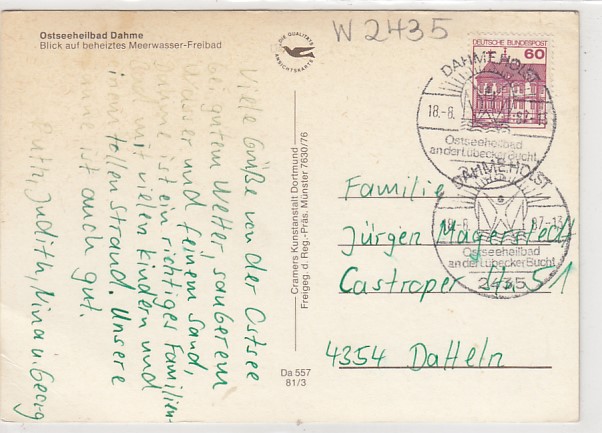 Ostseeheilbad Dahme
Blick auf beheiztes Meerwasser-Freibad
DIE QUALITÄTS
ANSICHTSKARTE
W 2435
DEUTSCHE BUNDESPOST
60
DAHME, HOLST
18.-8. 87-13
Ostseeheilbad
an der Lübecker Bucht
DAHME, HOLST
18.-8. 87-13
Ostseeheilbad
an der Lübecker Bucht
2435
Viele Grüße von der Ostsee
bei gutem Wetter, sauberem
Wasser und feinem Sand,
Dahme ist ein richtiges Familien-
bad mit vielen Kindern und
tollen Strand. Unsere
ist auch gut.
Ruth, Judith, Nina u. Georg
Cramers Kunstanstalt Dortmund
Freigeg. d. Reg.-Präs. Münster 7630/76
Da 557
81/3
Familie
Jürgen Magerstedt
Castroper Str. 51
4354 Datteln